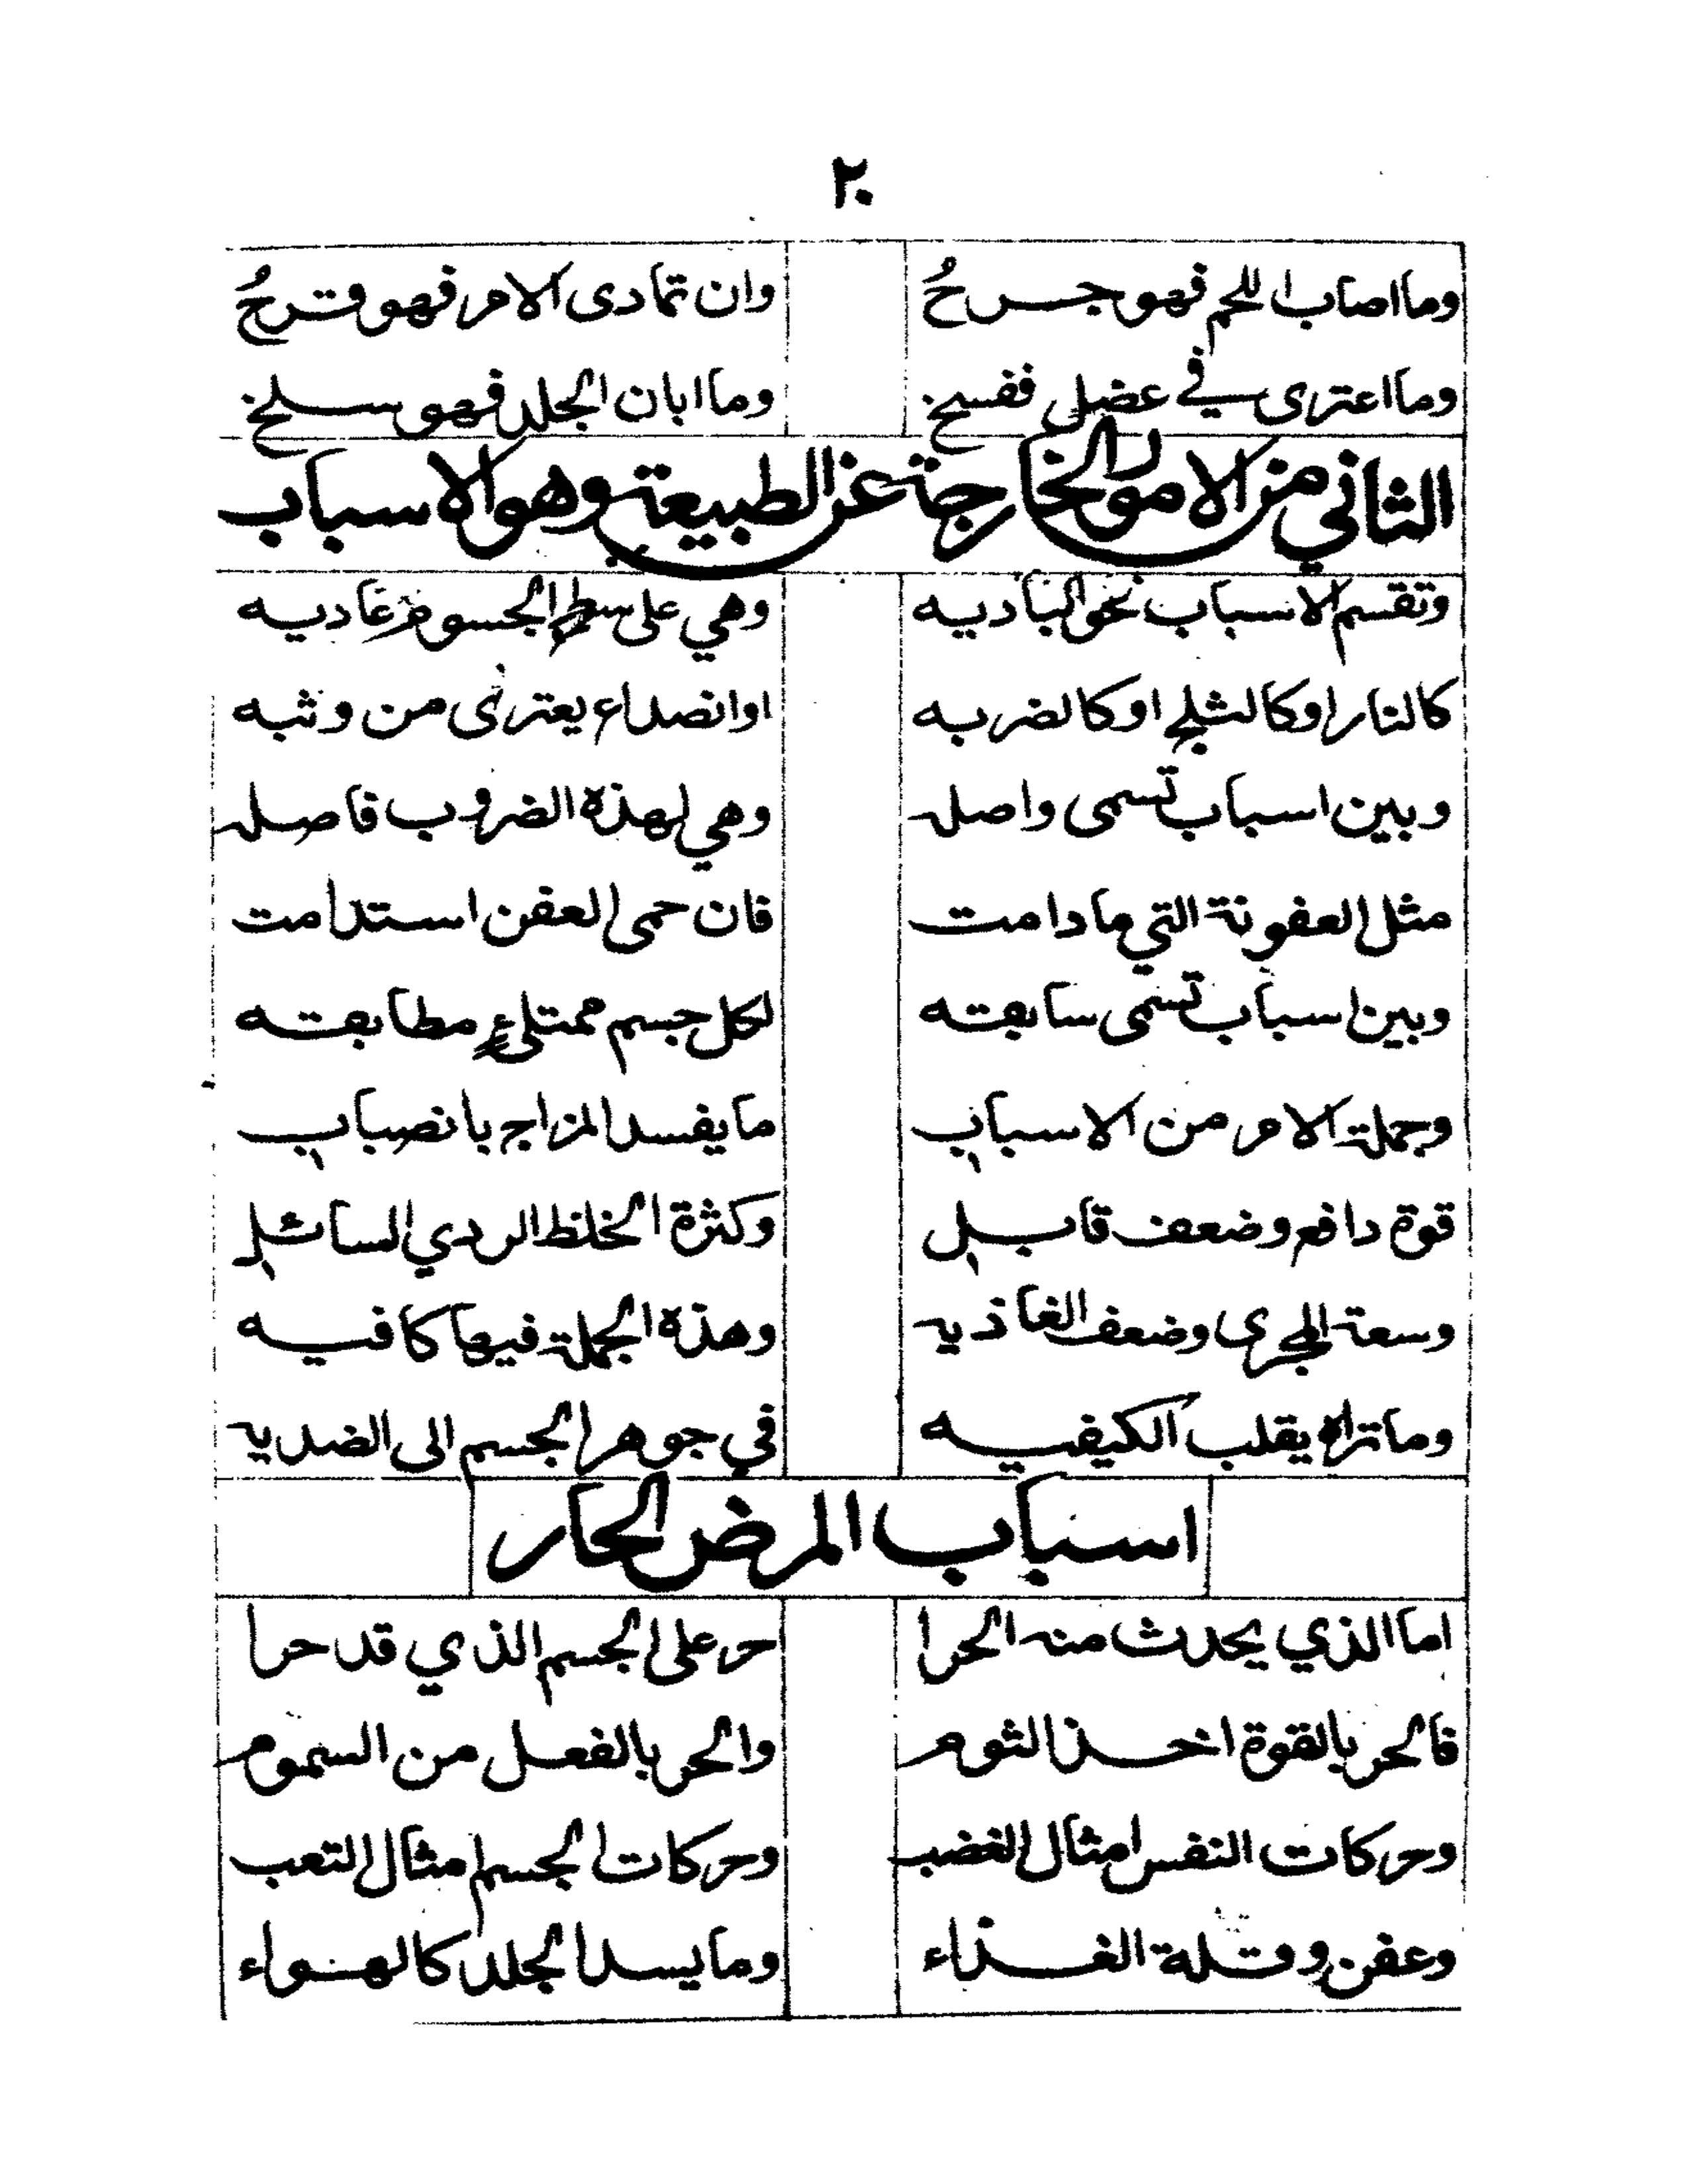 ٢٠
وما اصاب اللحم فهو جرحُ وان تمادى الامر فهو قرحُ
وما اعترى في عضل ففسخ وما ابان الجلد فهو سلخ
الثاني من الامور الخارجة عن الطبيعة وهو الاسباب
وتقسم الاسباب نحو الباديه وهي على سطح الجسوم عاديه
كالنار او كالثلج او كالضربه او انصداع يعترى من وثبه
وبين اسباب تسمى واصله وهي لهذه الضروب فاصله
مثل العفونة التي ما دامت فان حمى العفن استدامت
وبين اسباب تسمى سابقته لكل جسم ممتلىءٍ مطابقته
وجملة الامر من الاسباب ما يفسد المزاج بانصباب
قوة دافع وضعف قابل وكثرة الخلط الردي السائل
وسعة المجرى وضعف الغاذيه وهذه الجملة فيها كافيه
وما تراه يقلب الكيفيه في جوهر الجسم الى الضديه
اسباب المرض الحار
اما الذي يحدث منه الحرا حر على الجسم الذي قد حرا
فالحر بالقوة اخذ الثوم والحر بالفعل من السموم
وحركات النفس امثال الغضب وحركات الجسم امثال التعب
وعفن وقلة الغذاء وما يسد الجلد كالهواء